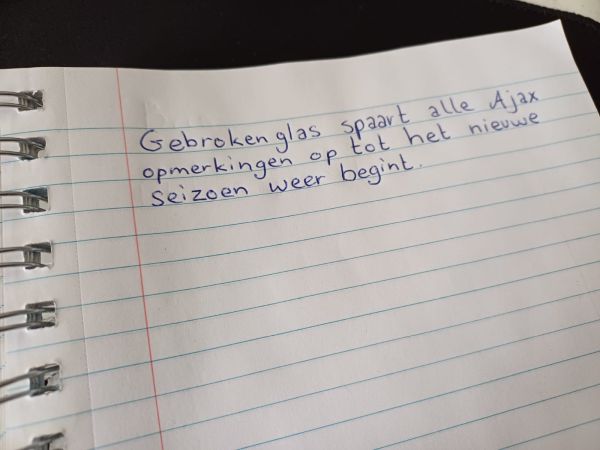 Gebrokenglas spaart alle Ajax
opmerkingen op tot het nieuwe
seizoen weer begint.